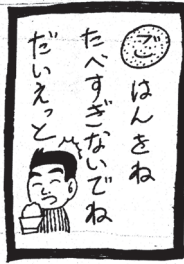 ご
はんをね
たべすぎないでね
だいえっと